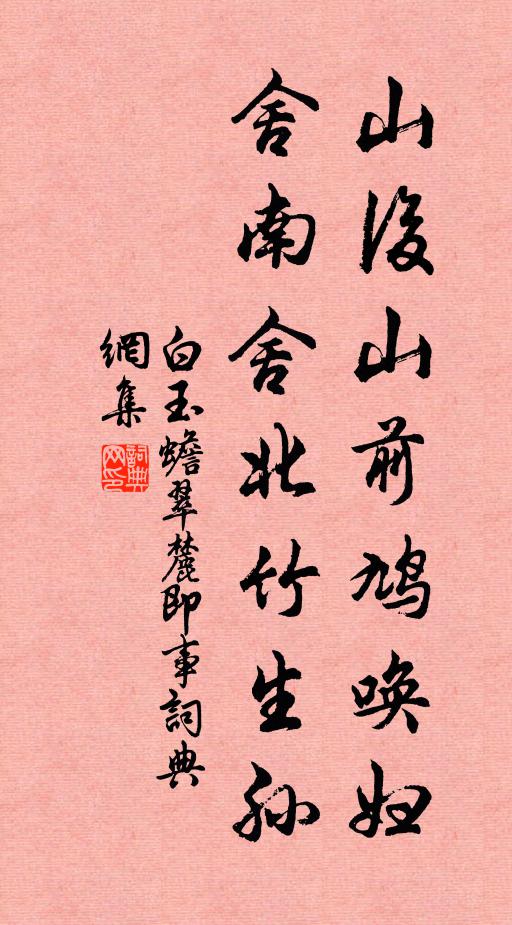 山後山前鳩喚婦
舍南舍北竹生孫
白玉蟾翠麓即事詞典
網集
詞典网印